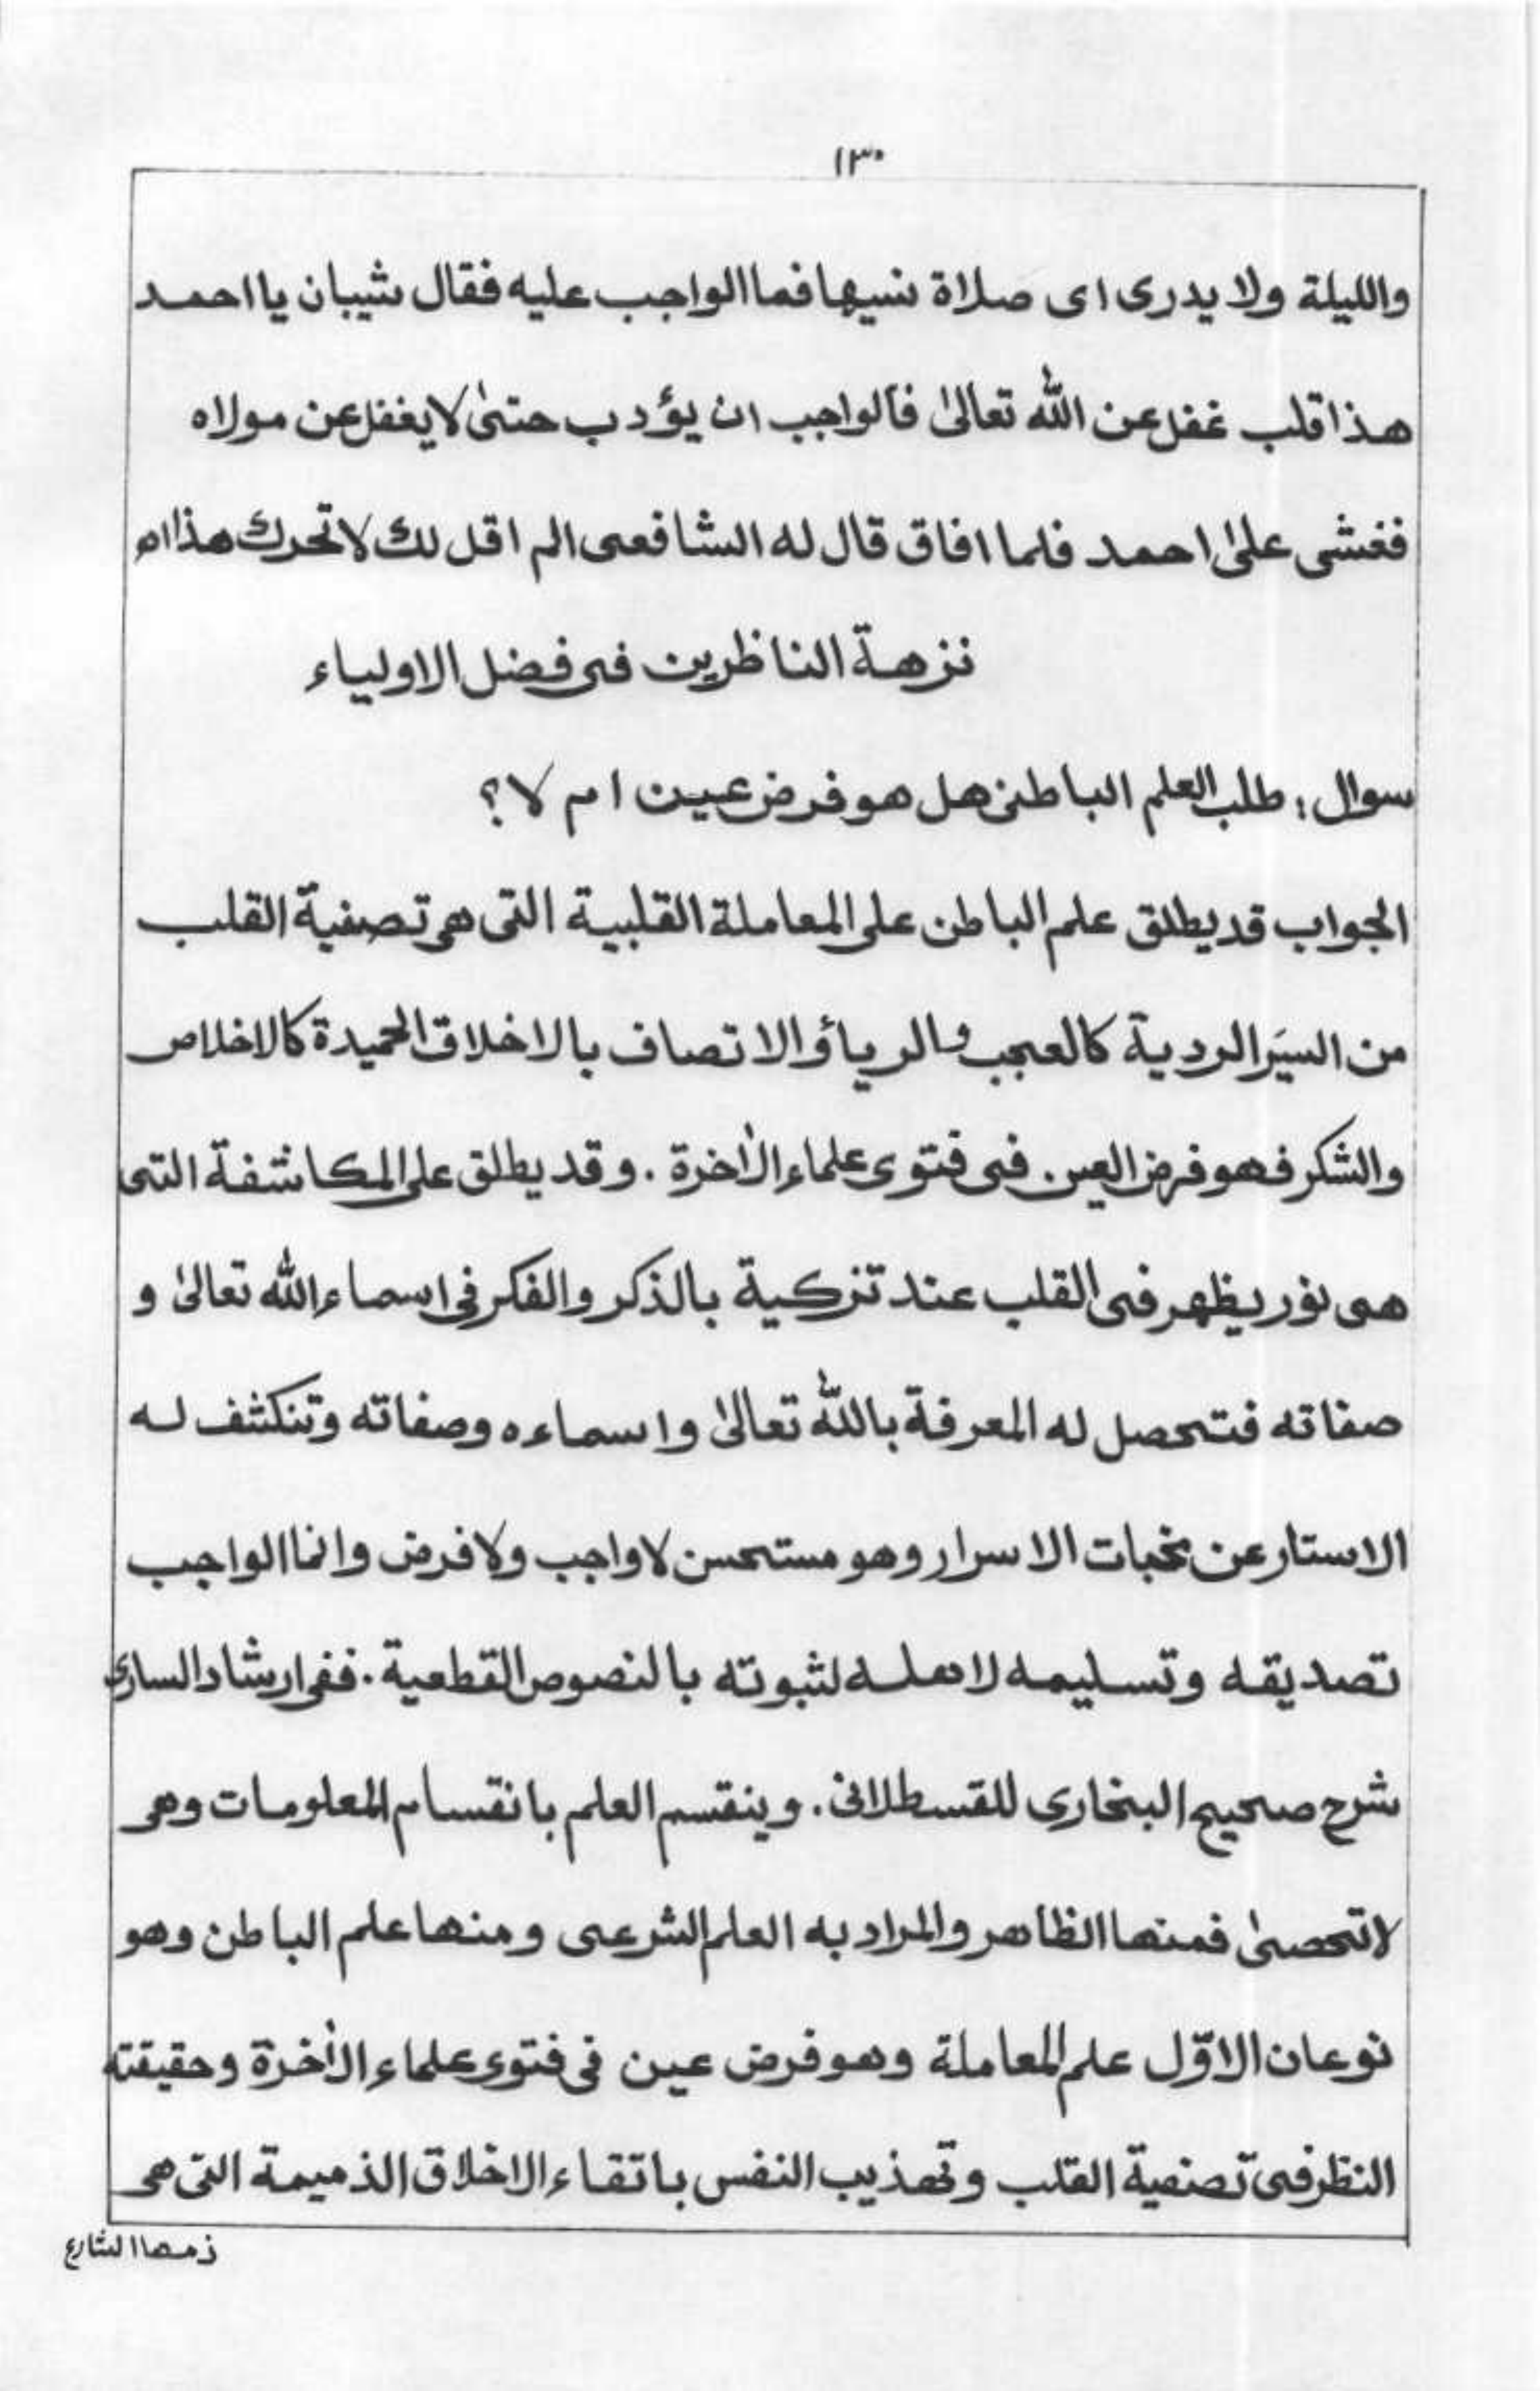 ١٣٠
والليلة ولا يدرى اى صلاة نسيها فما الواجب عليه فقال شيبان يا احمد
هذا قلب غفل عن الله تعالىٰ فالواجب ان يؤدب حتىٰ لا يغفل عن مولاه
فغشى علىٰ احمد فلما افاق قال له الشافعى الم اقل لك لا تحرك هذا اه
نزهة الناظرين فى فضل الاولياء
سوال: طلب العلم الباطنى هل هو فرض عين ام لا؟
الجواب قد يطلق علم الباطن على المعاملة القلبية التى هى تصفية القلب
من السيَر الردية كالعجب والرياؤ الاتصاف بالاخلاق الحميدة كالاخلاص
والشكر فهو فرض العين. فى فتوى علماء الاٰخرة. وقد يطلق على المكاشفة التى
هى نور يظهر فى القلب عند تزكية بالذكر والفكر فى اسماء الله تعالىٰ و
صفاته فتحصل له المعرفة بالله تعالىٰ واسماءه وصفاته وتنكشف له
الاستار عن مخبات الاسرار وهو مستحسن لا واجب ولا فرض وانما الواجب
تصديقه وتسليمه لاهله لثبوته بالنصوص القطعية. ففى ارشاد السارى
شرح صحيح البخارى للقسطلانى. وينقسم العلم بانقسام المعلومات وهى
لا تحصىٰ فمنها الظاهر والمراد به العلم الشرعى ومنها علم الباطن وهو
نوعان الاوّل علم المعاملة وهو فرض عين فى فتوى علماء الاٰخرة وحقيقته
النظر فى تصفية القلب وتهذيب النفس باتقاء الاخلاق الذميمة التى هى
ذمها الشارع